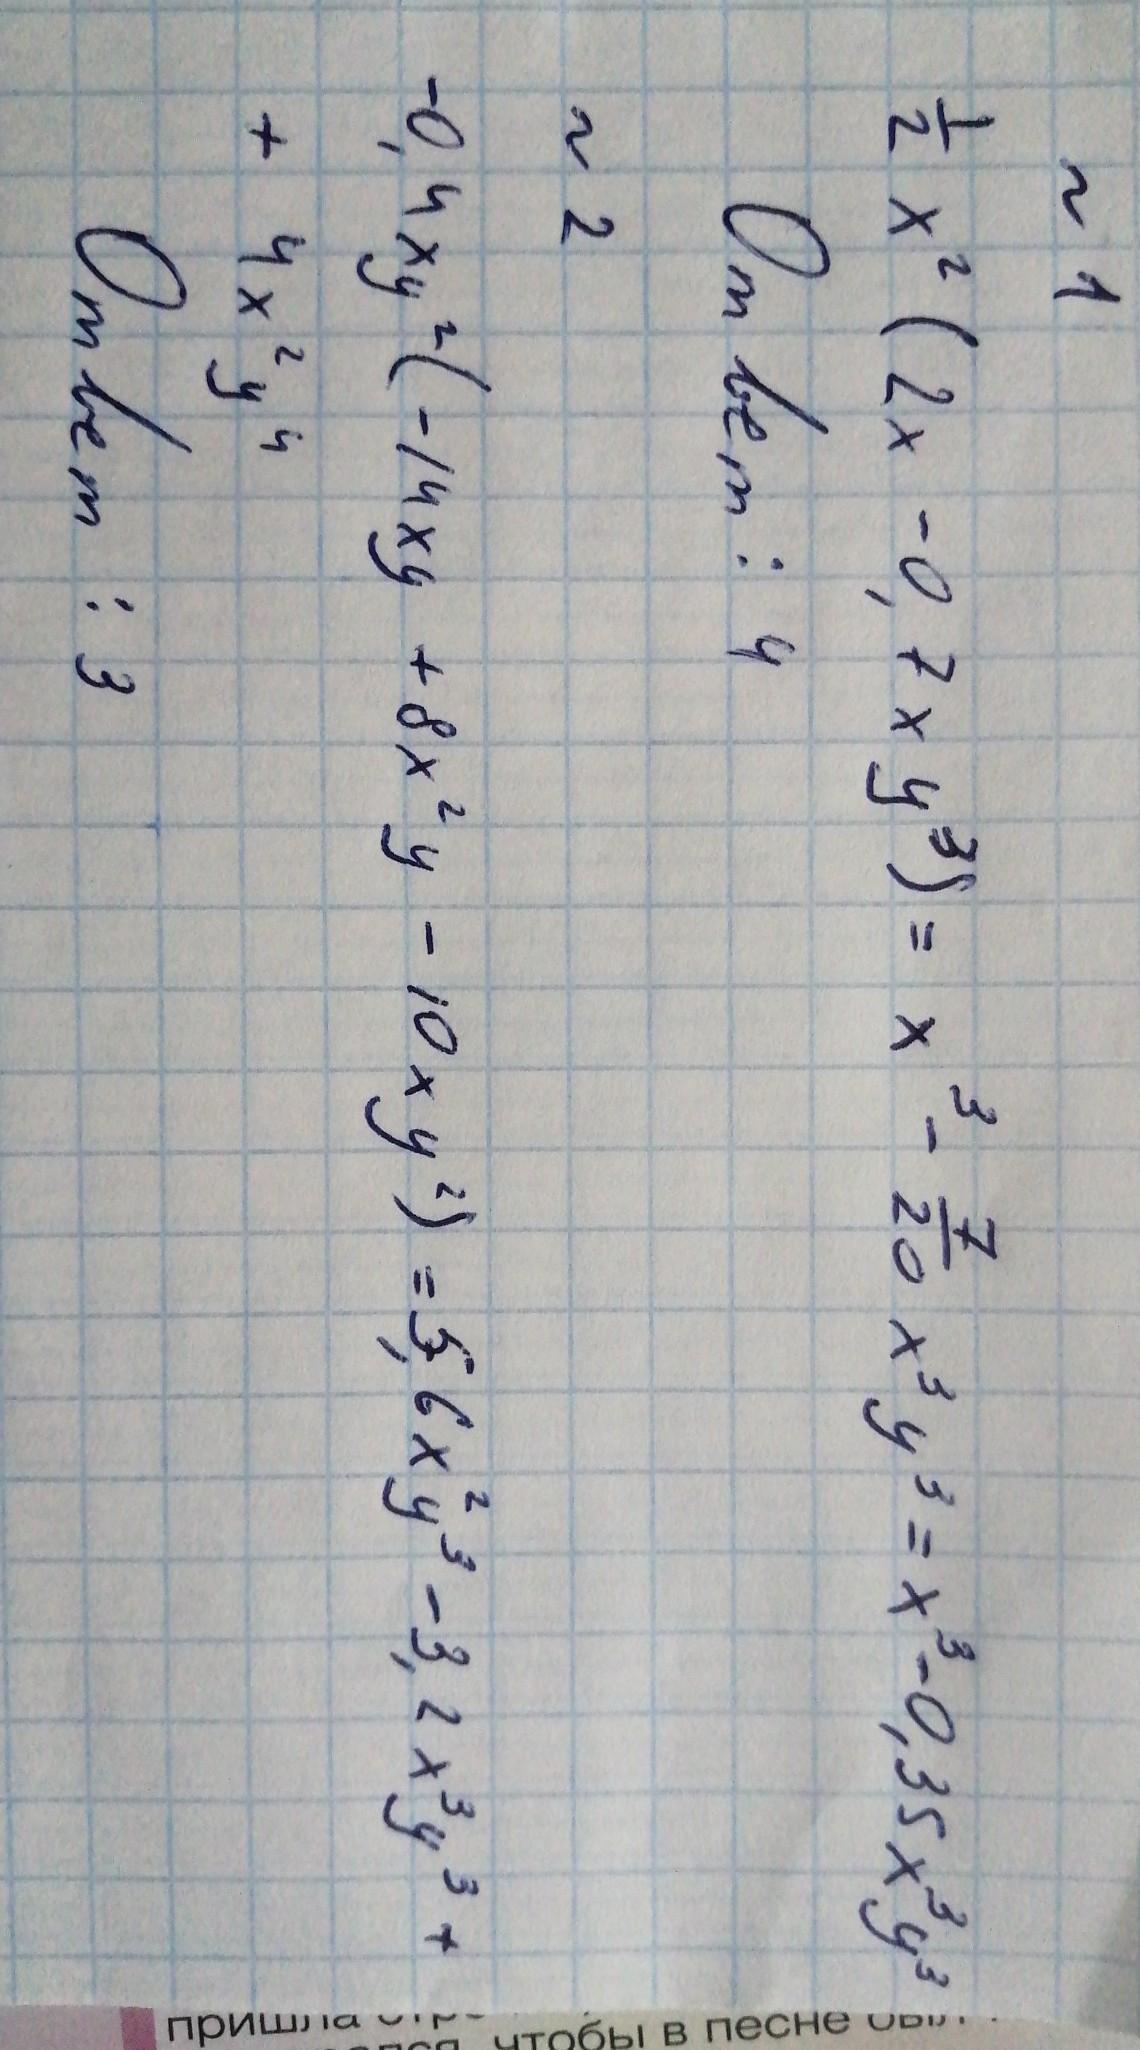 ~ 1
1/2 x² (2x - 0,7xy³) = x³ - 7/20 x³y³ = x³ - 0,35x³y³
Ответ : 4
~ 2
-0,4xy² (-14xy + 8x²y - 10xy²) = 5,6x²y³ - 3,2x³y³ +
+ 4x²y⁴
Ответ : 3
пришла
чтобы в песне